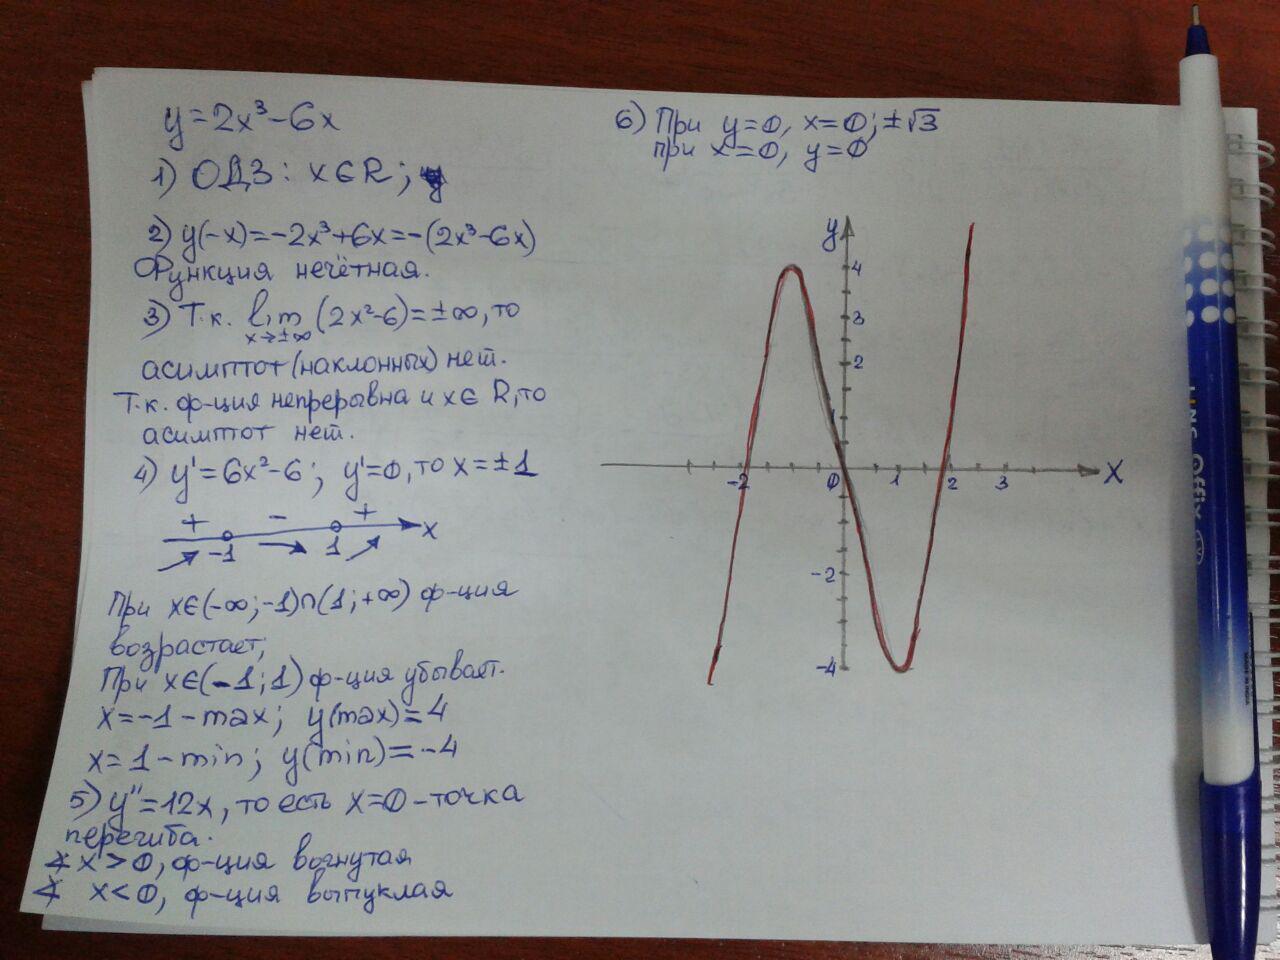 y=2x³-6x
1) ОДЗ: x∈R;
2) y(-x)=-2x³+6x=-(2x³-6x)
Функция нечётная.
3) Т.к. lim (2x²-6)=±∞, то
x→±∞
асимптот (наклонных) нет.
Т.к. ф-ция непрерывна и x∈R, то
асимптот нет.
4) y'=6x²-6; y'=0, то x=±1
+ - +
-1 1 x
При x∈(-∞;-1)∩(1;+∞) ф-ция
возрастает;
При x∈(-1;1) ф-ция убывает.
x=-1-max; y(max)=4
x=1-min; y(min)=-4
5) y''=12x, то есть x=0-точка
перегиба.
∢ x>0, ф-ция вогнутая
∢ x<0, ф-ция выпуклая
6) При y=0, x=0; ±√3
при x=0, y=0
y
4
3
2
1
-2 0 1 2 3 x
-2
-4
LINC Offix